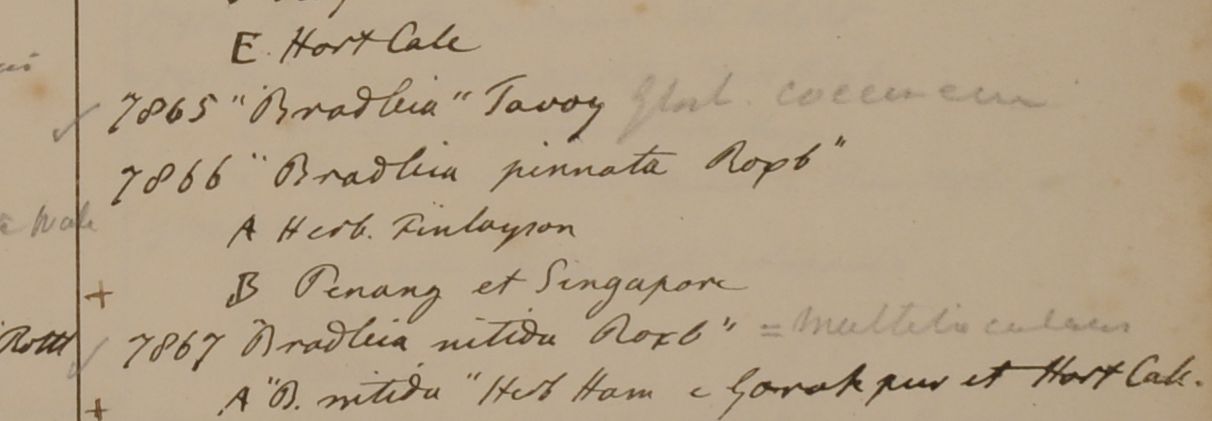 E. Hort Calc
7865 "Bradleia" Tavoy Gloch. coccineum
7866 "Bradleia pinnata Roxb"
A Herb. Finlayson
Wall
+ B Penang et Singapore
Rottl 7867 "Bradleia nitida Roxb" = multiloculare
+ A "B. nitida" Herb Ham e Gorakpur et Hort Calc.